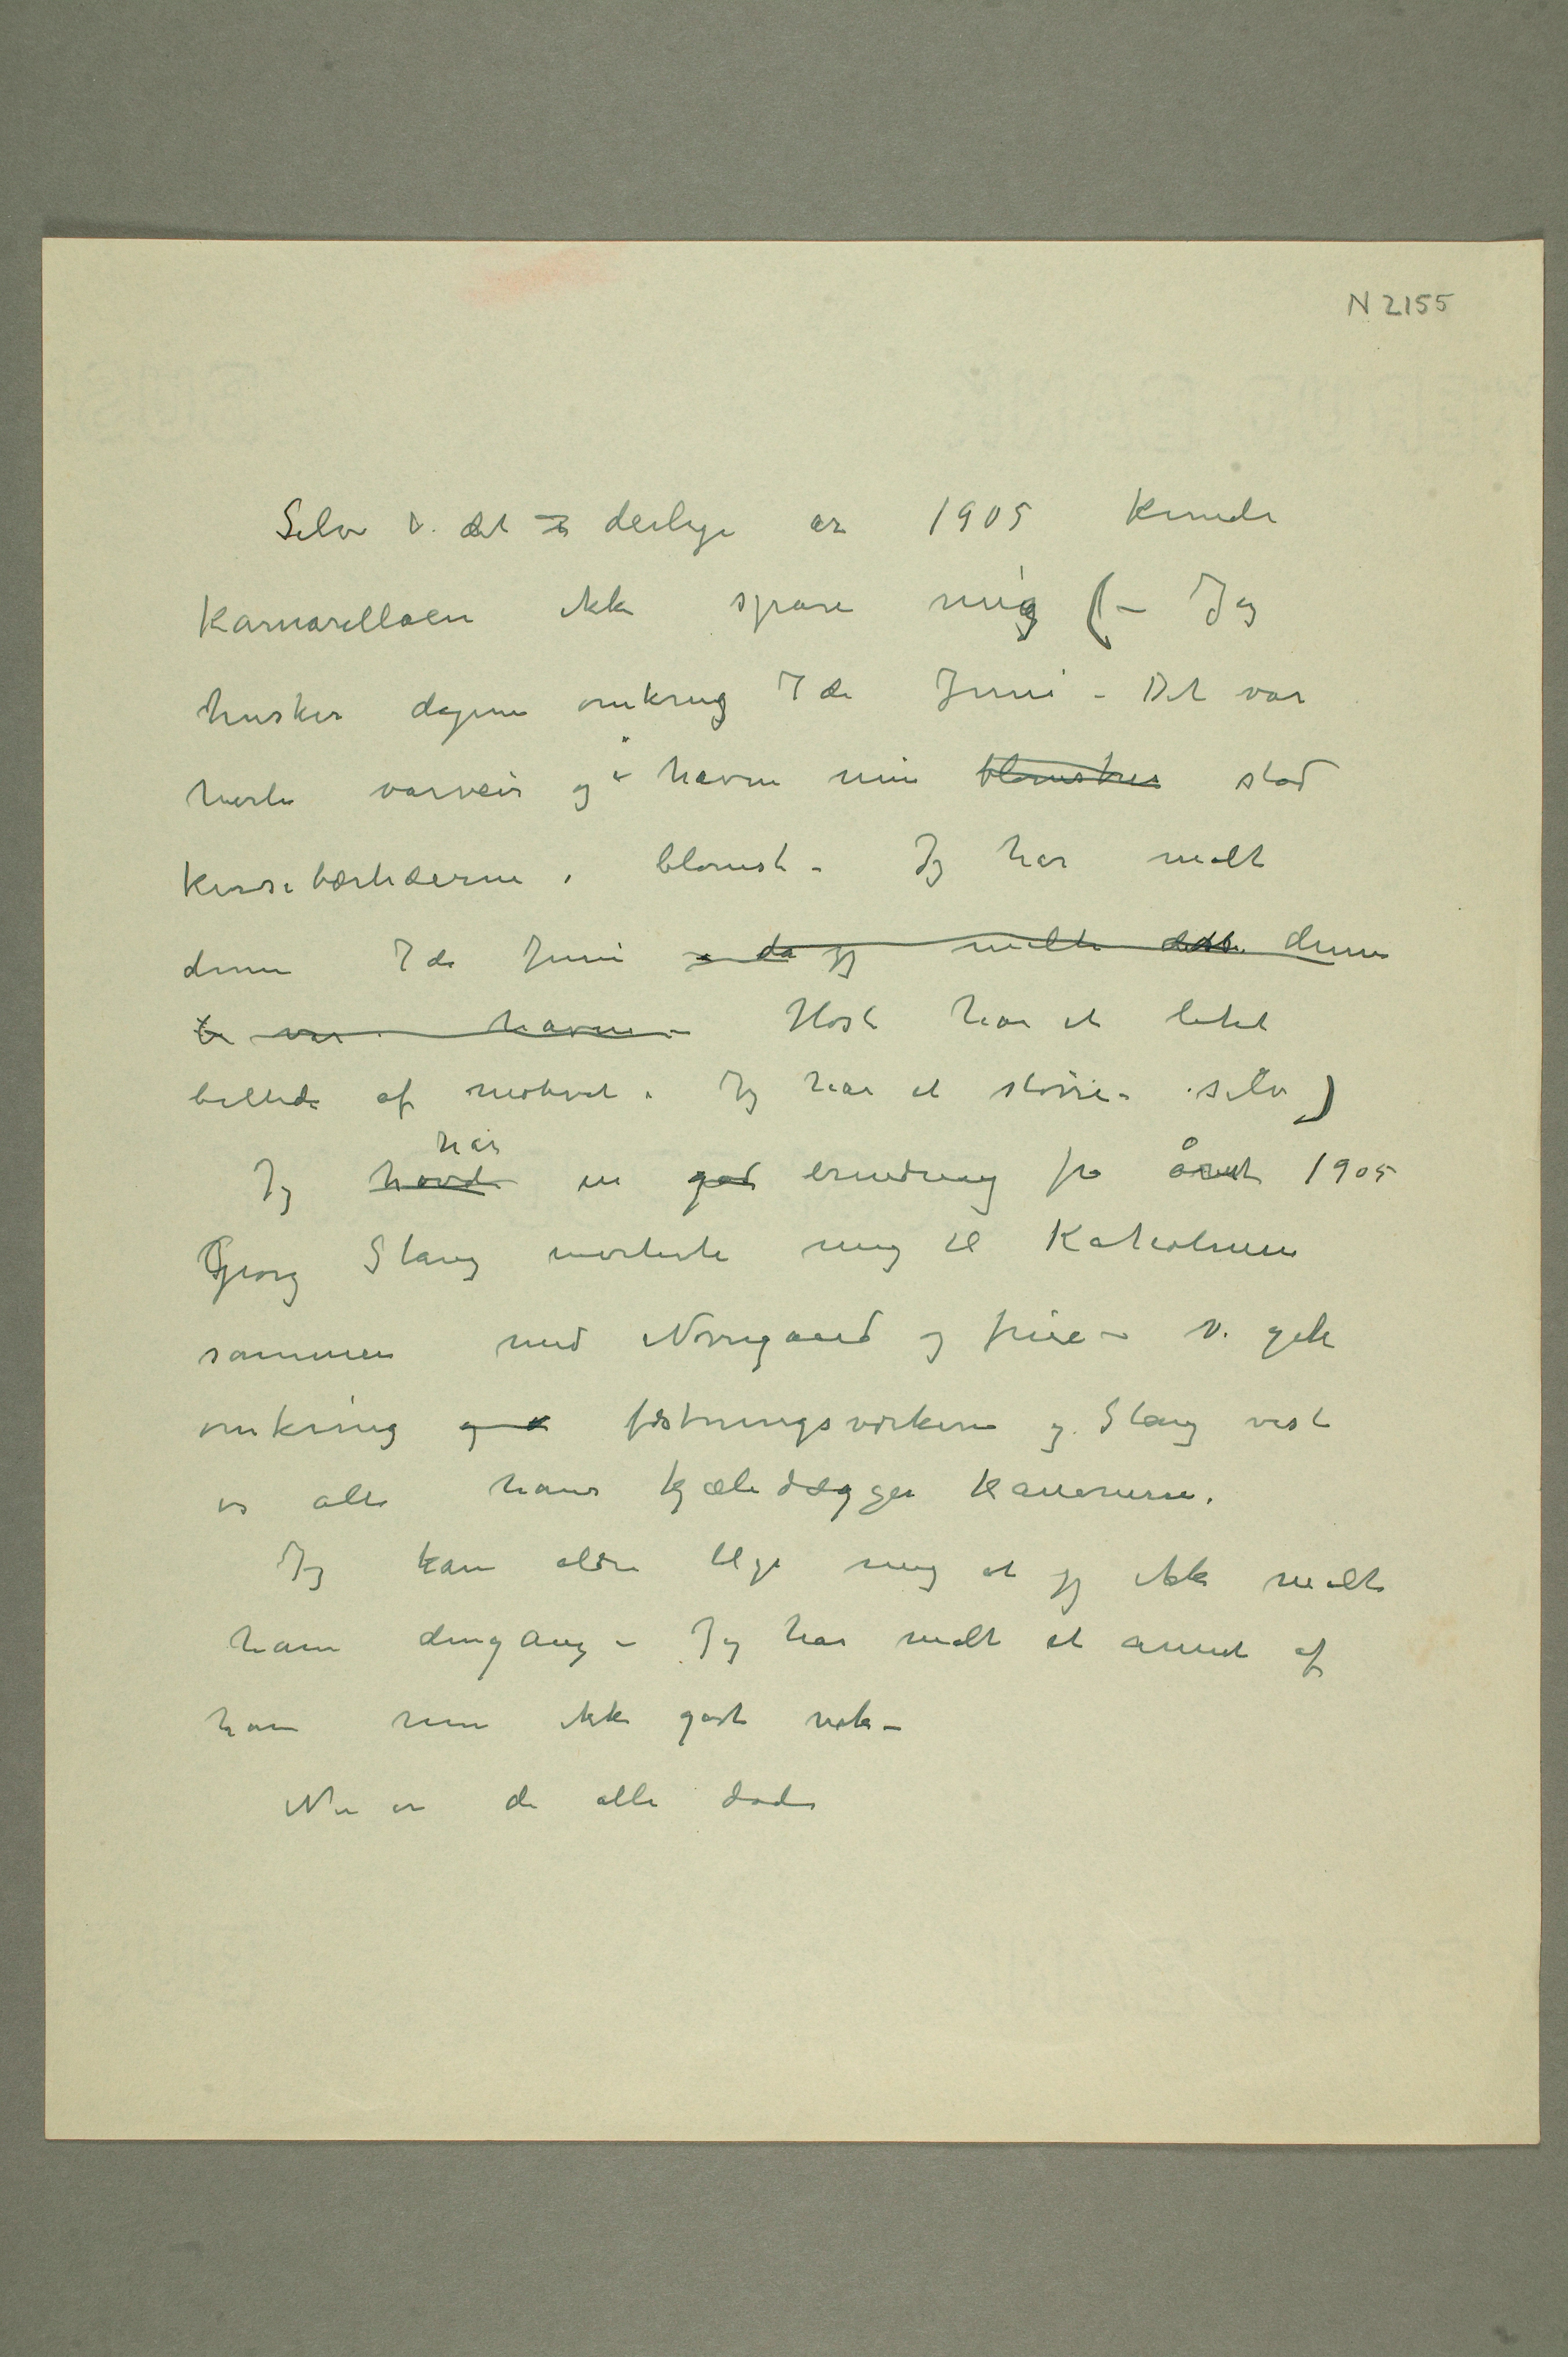 N 2155
Selv i det deilige år 1905 kunde
Karnarilloen ikke spare mig (– Jeg
husker dagene omkring 7de Juni – Det var
herligt varveir og i haven min blomstrer stod
kirsebærtræerne i blomst – Jeg har malt
denne 7de Juni – da jeg malte dette denne
var haven – Høst har et litet
billede af motivet. Jeg har et større selv)
har
Jeg havde en god erindring fra året 1905
Georg Stang inviterte mig til Kaholmen
sammen med Nørregaard og frue – Vi gik
omkring og fæstningsværkene og Stang viste
os alle hans kjæledægger kanonerne.
Jeg kan aldri tilgi mig at jeg ikke malte
ham dengang – Jeg har malt et annet af
ham men ikke godt nok –
Nu er de alle døde